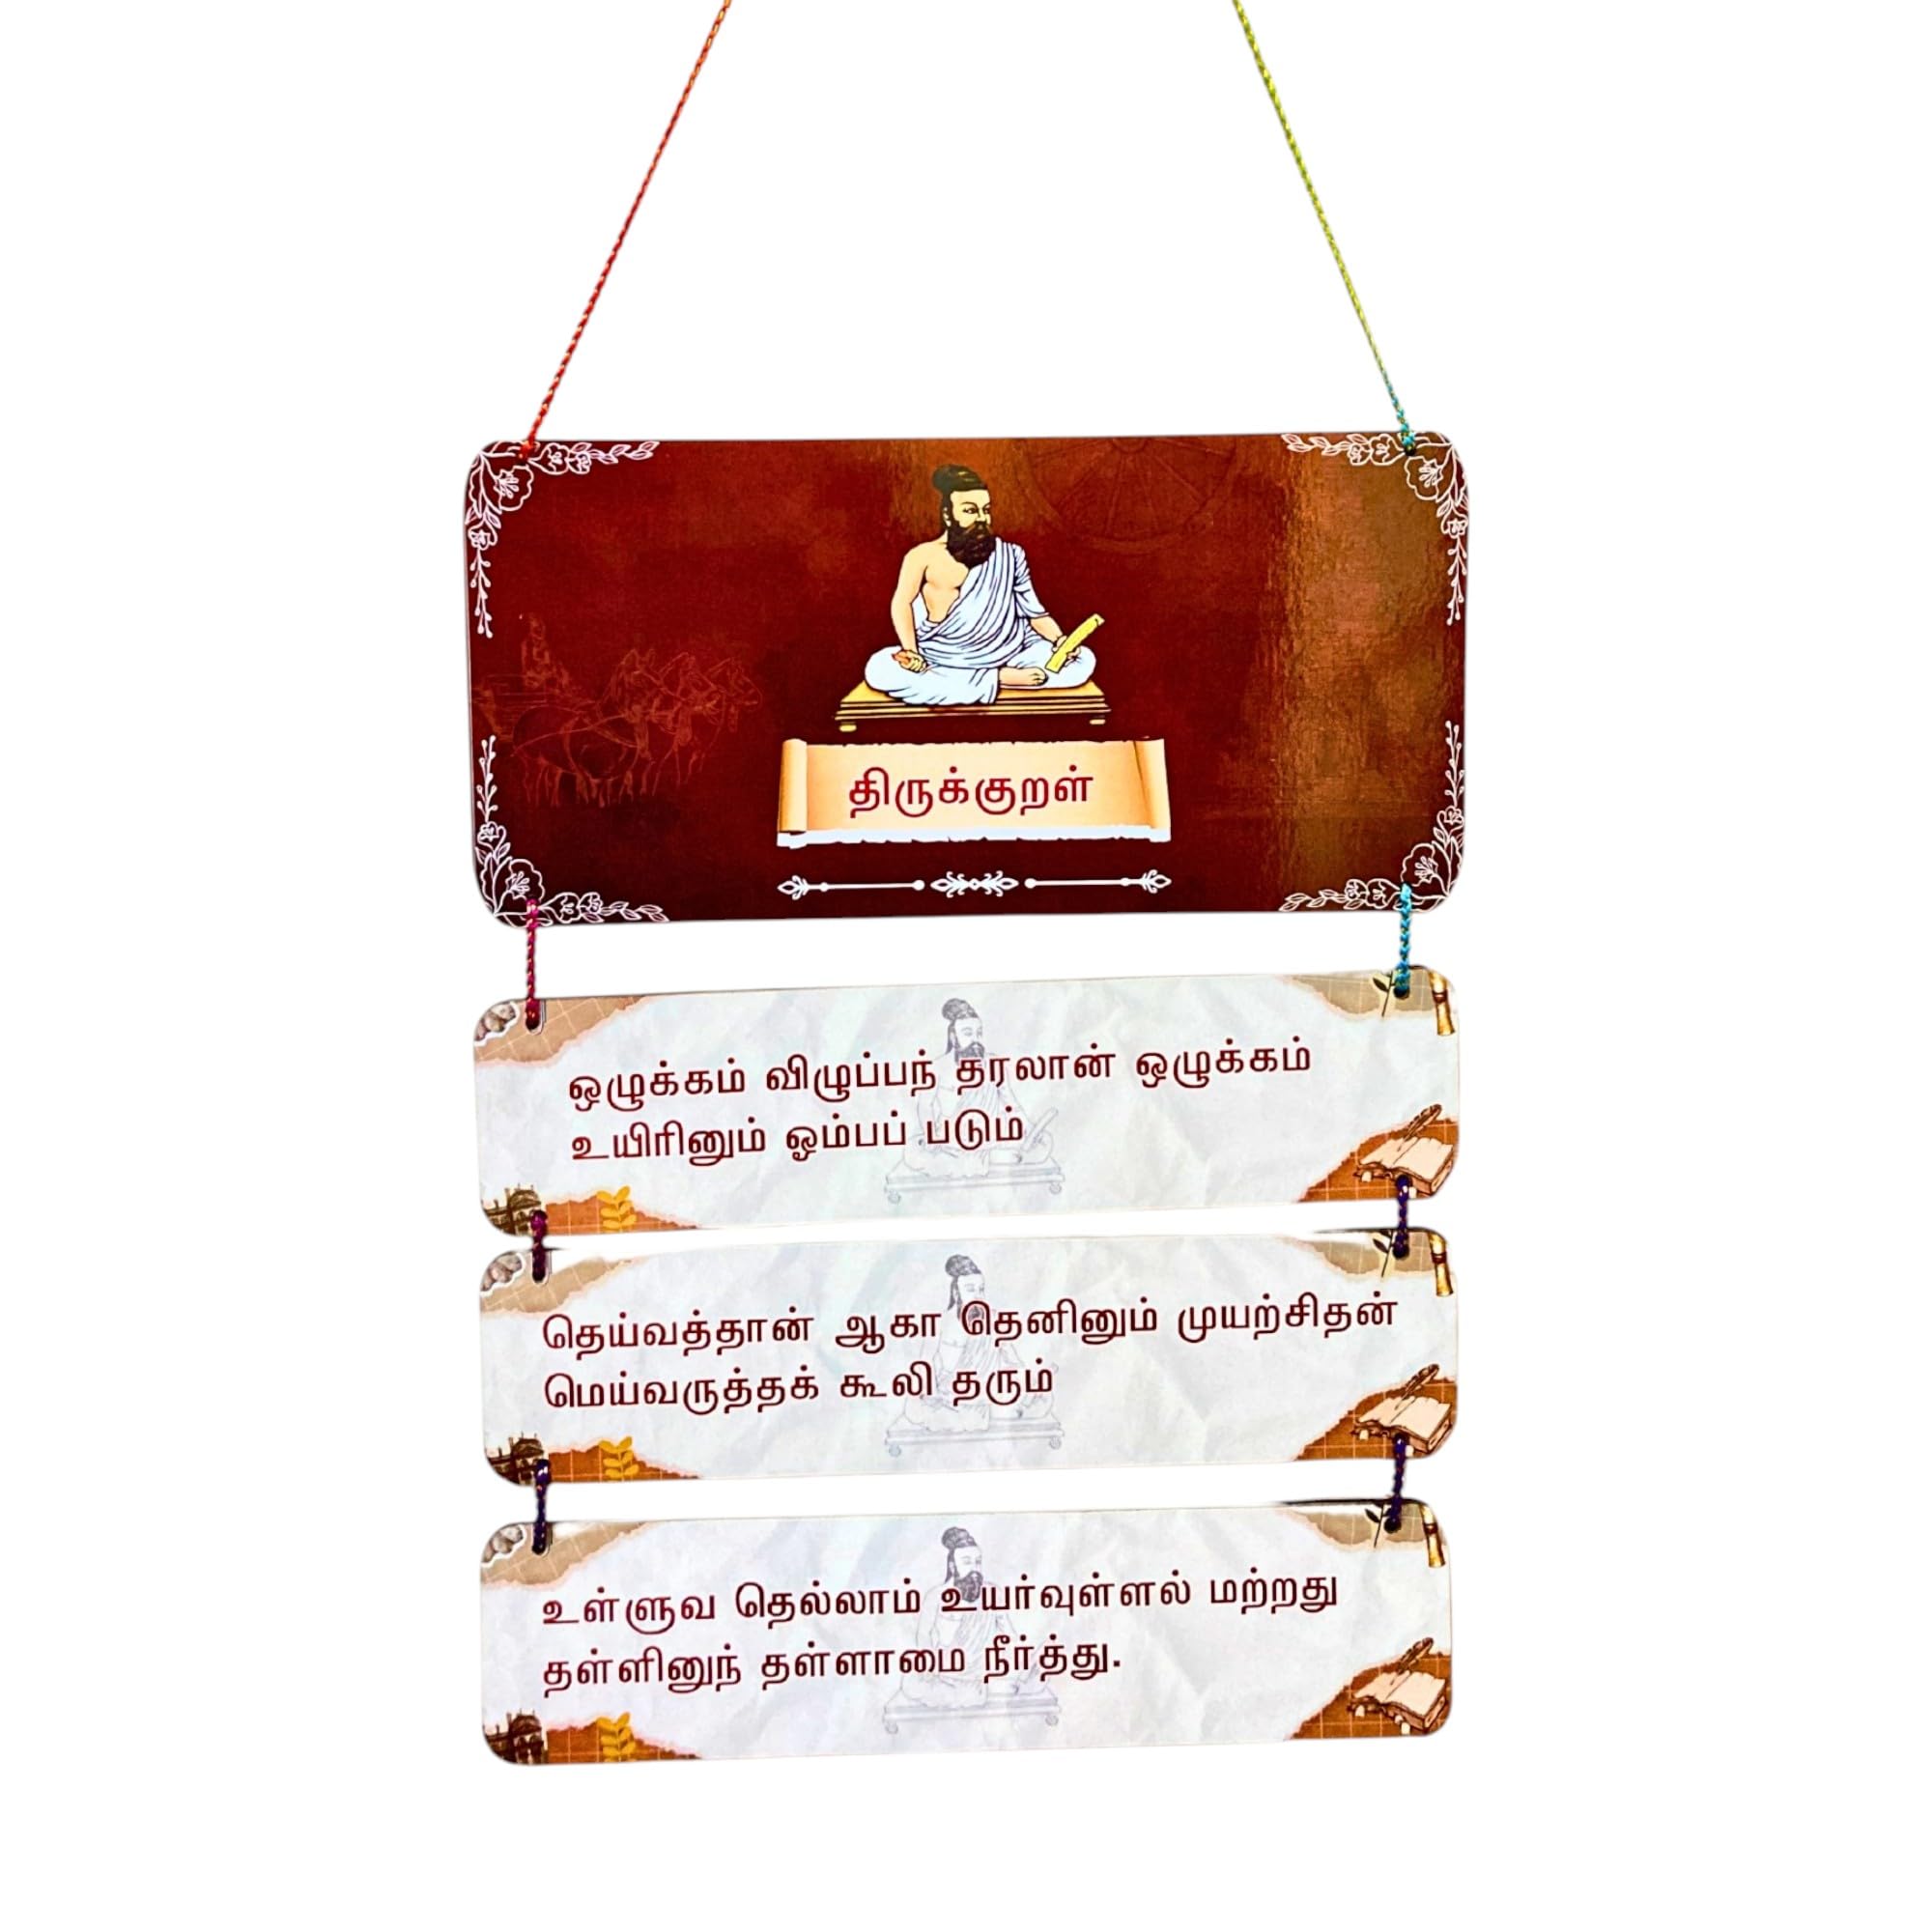 திருக்குறள்
ஒழுக்கம் விழுப்பந் தரலான் ஒழுக்கம்
உயிரினும் ஓம்பப் படும்
தெய்வத்தான் ஆகா தெனினும் முயற்சிதன்
மெய்வருத்தக் கூலி தரும்
உள்ளுவ தெல்லாம் உயர்வுள்ளல் மற்றது
தள்ளினுந் தள்ளாமை நீர்த்து.